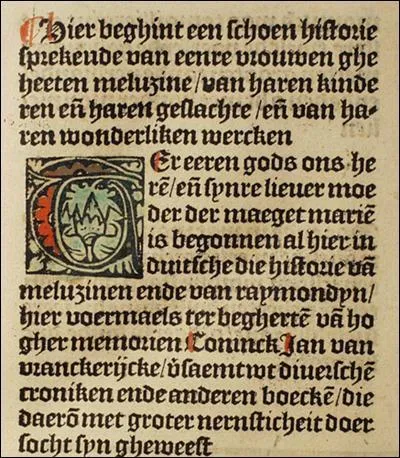 Hier beghint een schoen historie
sprekende van eenre vrouwen ghe
heeten meluzine/van haren kinde
ren eñ haren geslachte/eñ van ha-
ren wonderliken wercken
Er eeren gods ons he
rē/eñ synre lieuer moe
der der maeget mariē
is begonnen al hier in
duitsche die historie vā
meluzinen ende van raymondyn/
hier voermaels ter beghertē vā ho
gher memorien Coninck Jan van
vranckerijcke/v̄saemt wt diuerschē
croniken ende anderen boeckē/die
daerō met groter nernsticheit doer
socht syn gheweest